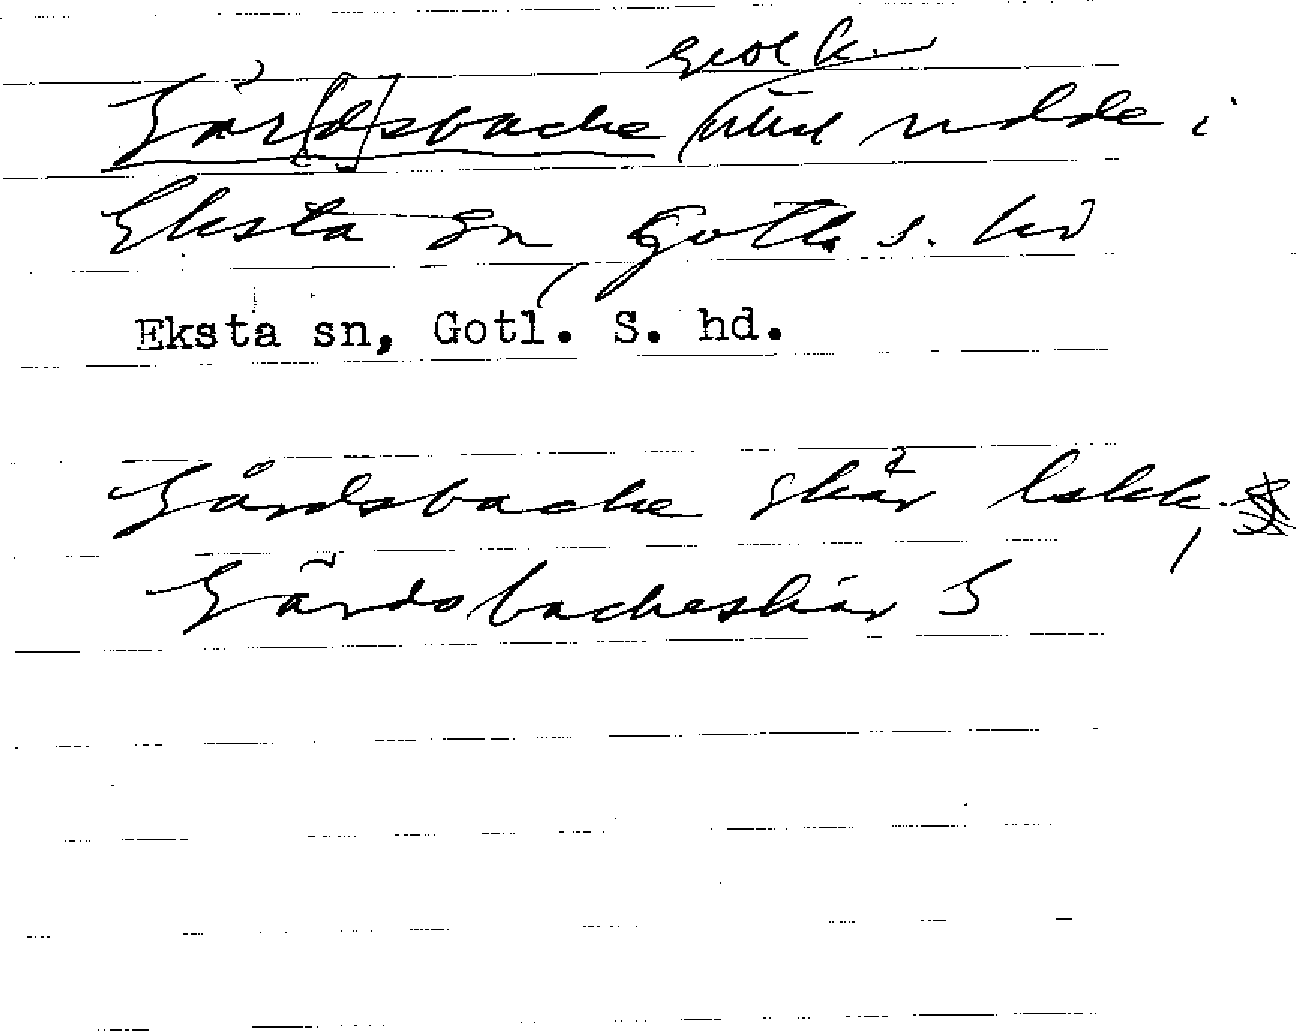 Går[d]sbacke udde i
Eksta sn, Gotl. s. hd
Eksta sn, Gotl. S. hd.
Gårdsbacke skär
Gårdsbackeskär S